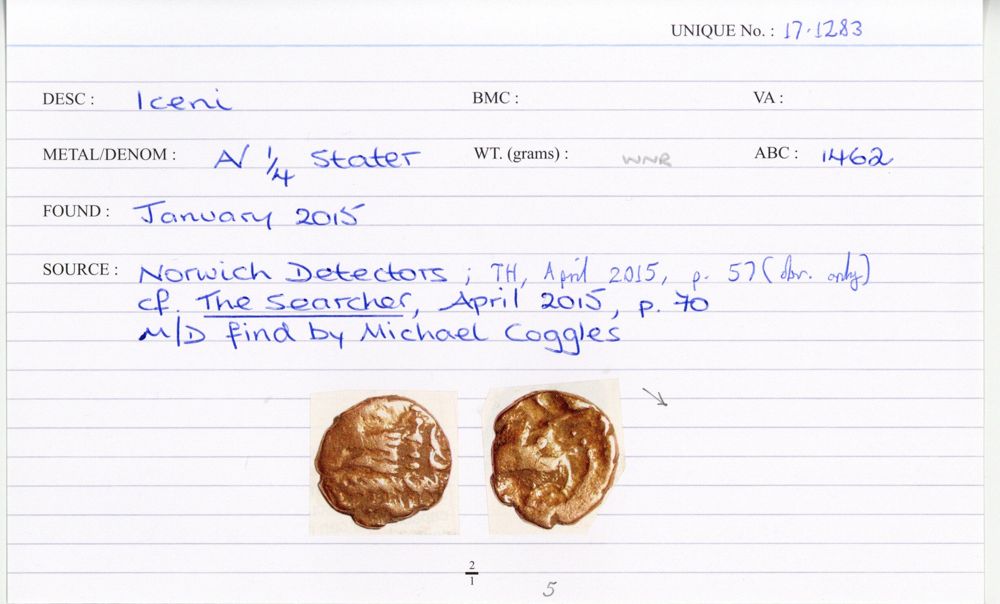 UNIQUE No. : 17.1283
DESC : Iceni BMC : VA :
METAL/DENOM : AV 1/4 Stater WT. (grams) : WNR ABC : 1462
FOUND : January 2015
SOURCE : Norwich Detectors ; TH, April 2015, p. 57 (obv. only)
cf. The Searcher, April 2015, p. 70
M/D find by Michael Coggles
2/1
5